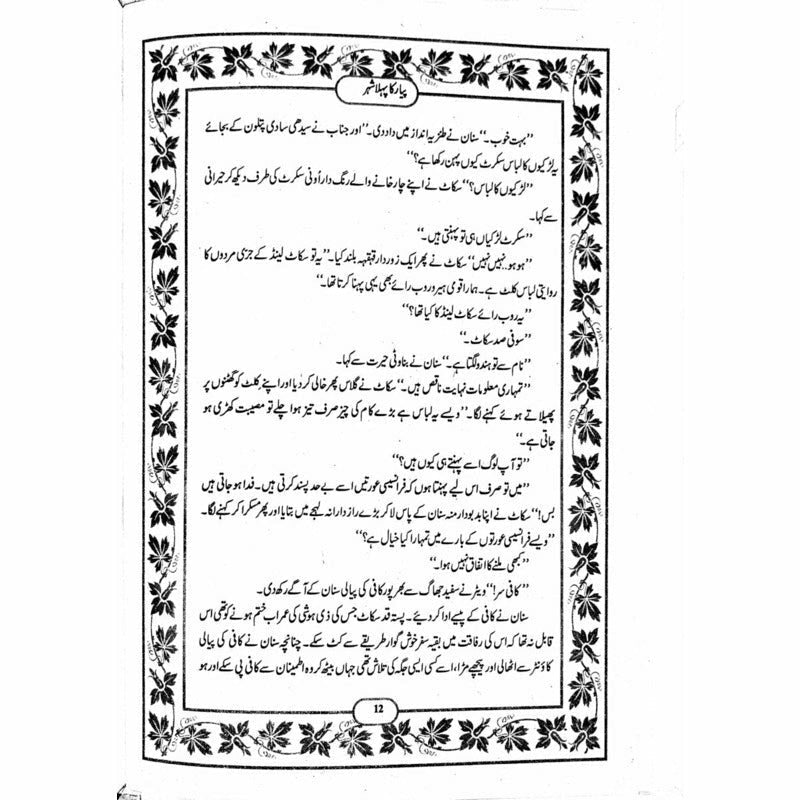 پیار کا پہلا شہر
’’بہت خوب۔‘‘ سنان نے طنزیہ انداز میں داد دی۔ ’’اور جناب نے سیدھی سادی پتلون کے بجائے
یہ لڑکیوں کا لباس سکرٹ کیوں پہن رکھا ہے؟‘‘
’’لڑکیوں کا لباس؟‘‘ سکاٹ نے اپنے چارخانے والے رنگ دار اُونی سکرٹ کی طرف دیکھ کر حیرانی
سے کہا۔
’’سکرٹ لڑکیاں ہی تو پہنتی ہیں۔‘‘
’’ہو ہو.. نہیں نہیں‘‘ سکاٹ نے پھر ایک زوردار قہقہہ بلند کیا۔ ’’یہ تو سکاٹ لینڈ کے جری مردوں کا
روایتی لباس کلٹ ہے۔ ہمارا قومی ہیرو روب رائے بھی یہی پہنا کرتا تھا۔‘‘
’’یہ روب رائے سکاٹ لینڈ کا کیا تھا؟‘‘
’’سو فی صد سکاٹ۔‘‘
’’نام سے تو ہندو لگتا ہے۔‘‘ سنان نے بناوٹی حیرت سے کہا۔
’’تمہاری معلومات نہایت ناقص ہیں۔‘‘ سکاٹ نے گلاس پھر خالی کر دیا اور اپنے کلٹ کو گھٹنوں پر
پھیلاتے ہوئے کہنے لگا۔ ’’ویسے یہ لباس ہے بڑے کام کی چیز صرف تیز ہوا چلے تو مصیبت کھڑی ہو
جاتی ہے۔‘‘
’’تو آپ لوگ اسے پہنتے ہی کیوں ہیں؟‘‘
’’میں تو صرف اس لیے پہنتا ہوں کہ فرانسیسی عورتیں اسے بے حد پسند کرتی ہیں۔ فدا ہو جاتی ہیں
بس!‘‘ سکاٹ نے اپنا بدبودار منہ سنان کے پاس لا کر بڑے رازدارانہ لہجے میں بتایا اور پھر مسکرا کر کہنے لگا۔
’’ویسے فرانسیسی عورتوں کے بارے میں تمہارا کیا خیال ہے؟‘‘
’’کبھی ملنے کا اتفاق نہیں ہوا۔‘‘
’’کافی سر!‘‘ ویٹر نے سفید جھاگ سے بھرپور کافی کی پیالی سنان کے آگے رکھ دی۔
سنان نے کافی کے پیسے ادا کر دیئے۔ پستہ قد سکاٹ جس کی ذی ہوشی کی عمر اب ختم ہونے کو تھی اس
قابل نہ تھا کہ اس کی رفاقت میں بقیہ سفر خوش گوار طریقے سے کٹ سکے۔ چنانچہ سنان نے کافی کی پیالی
کاؤنٹر سے اٹھالی اور پیچھے مڑا، اسے کسی ایسی جگہ کی تلاش تھی جہاں بیٹھ کر وہ اطمینان سے کافی پی سکے اور ہو
12